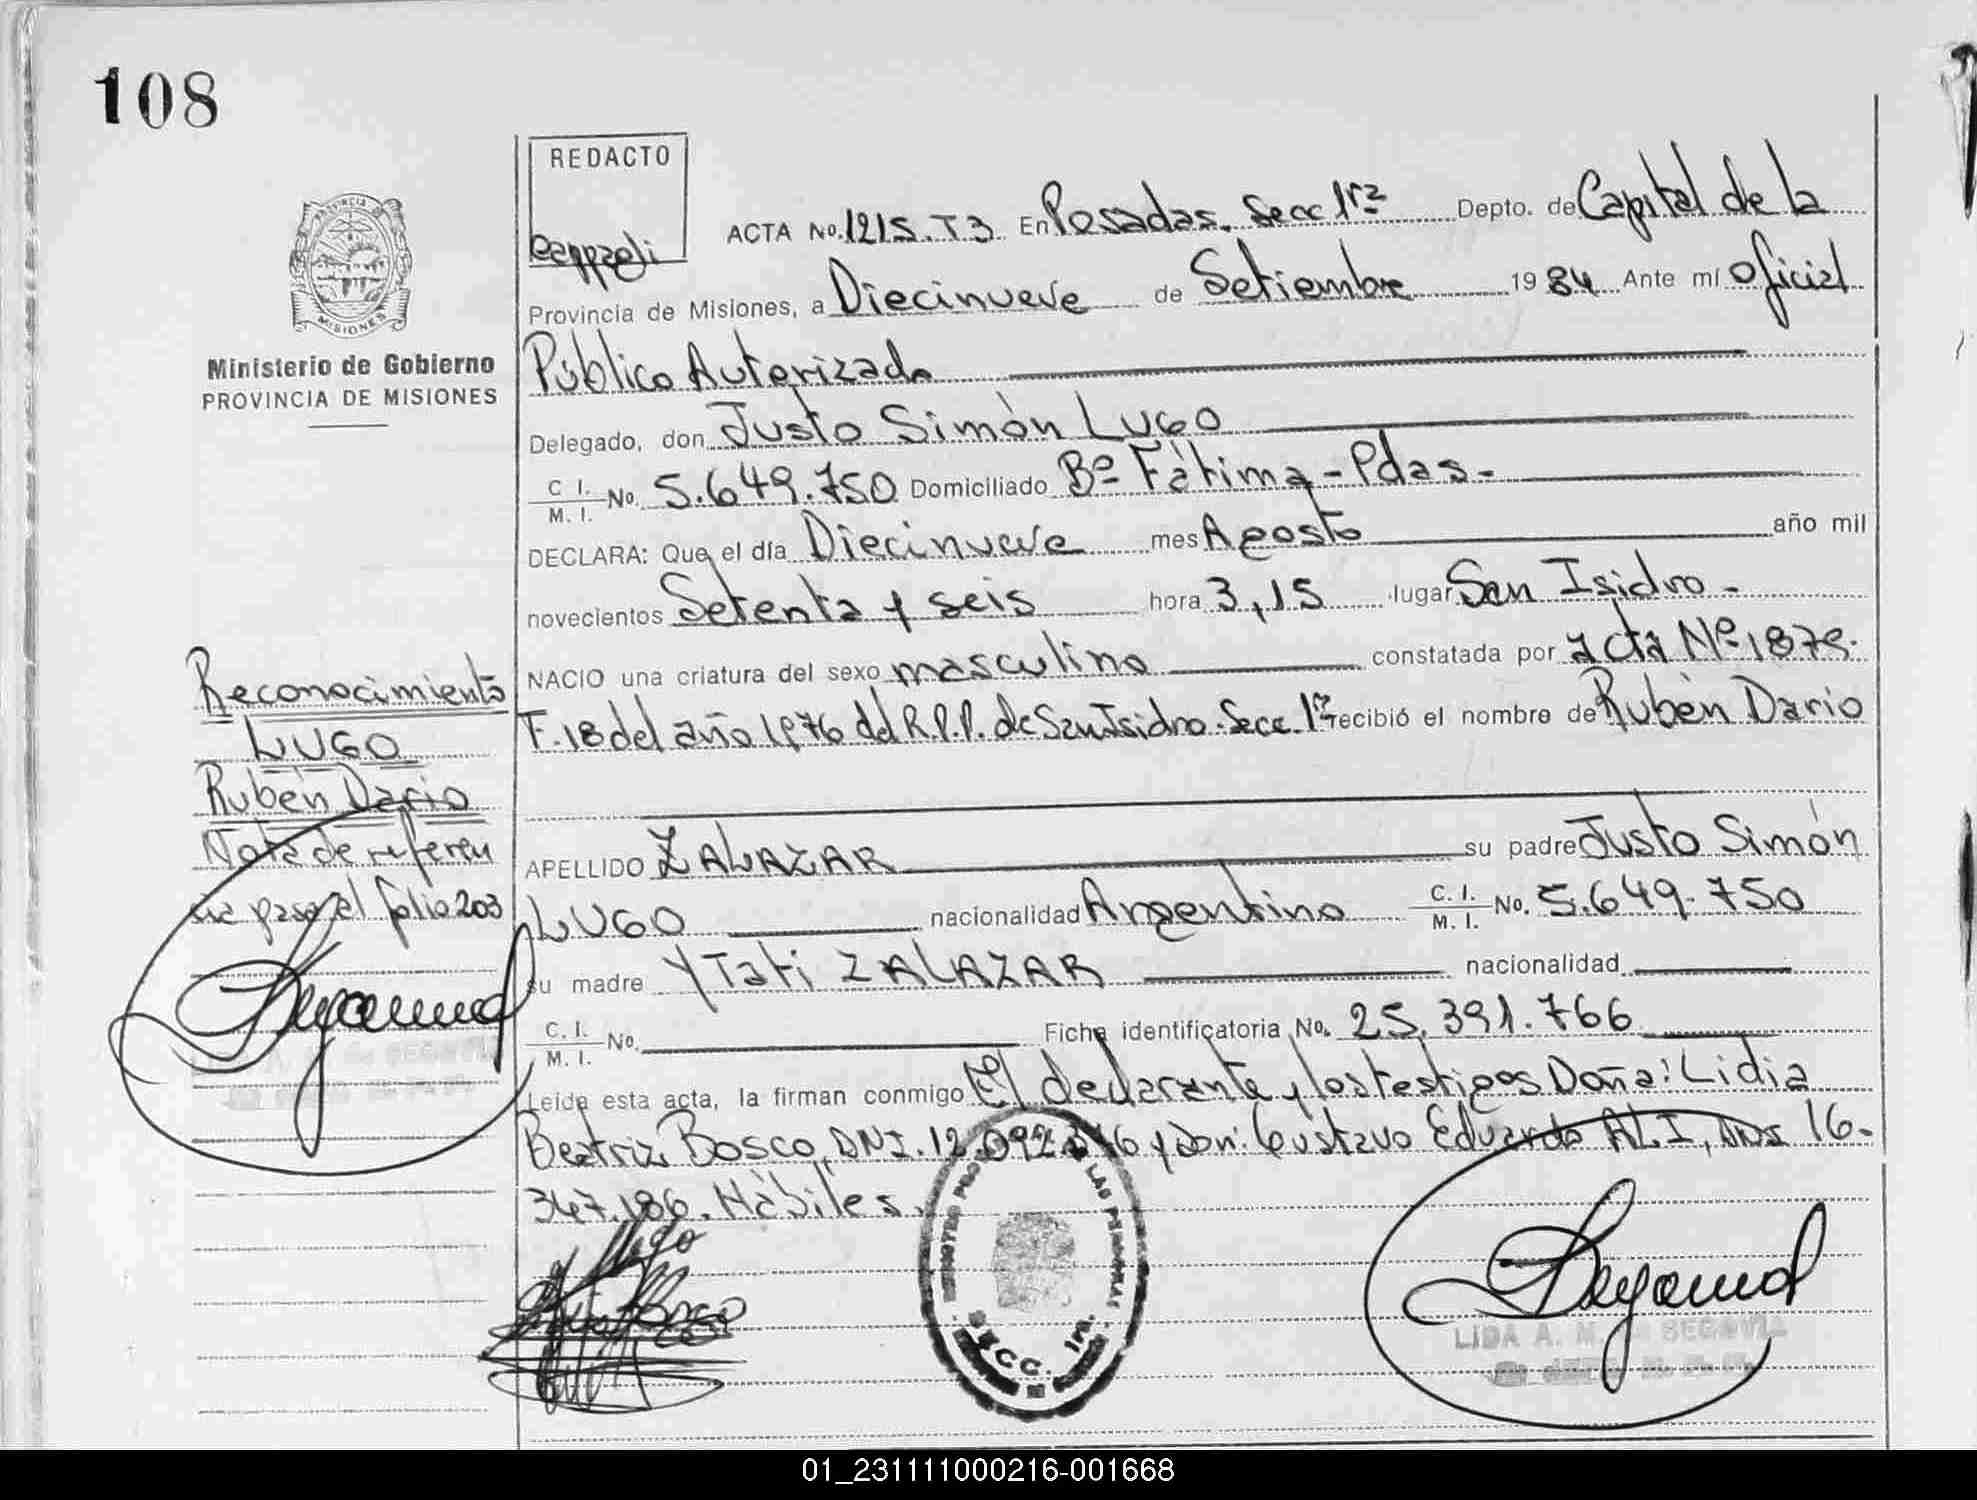 108
REDACTO
ACTA No. 1215. T3 En Posadas, Secc 1ra Depto. de Capital de la
Provincia de Misiones, a Diecinueve de Setiembre 1984 Ante mí Oficial
Público Autorizado
Delegado, don Justo Simón LUGO
C. I.
M. I. No. 5.649.750 Domiciliado Bº Fátima - Pdas -
DECLARA: Que el día Diecinueve mes Agosto año mil
novecientos Setenta y seis hora 3,15 lugar San Isidro -
NACIO una criatura del sexo masculino constatada por acta Nº 187
F. 18 del año 1976 del R.P.P. de San Isidro. Secc. 1ra recibió el nombre de Rubén Dario
APELLIDO ZALAZAR su padre Justo Simón
LUGO nacionalidad Argentino C. I. M. I. No. 5.649.750
su madre Ytati ZALAZAR nacionalidad
C. I.
M. I. No. Ficha identificatoria No. 25.391.766
Leída esta acta, la firman conmigo El declarante y los testigos Doña: Lidia
Beatriz Bosco, DNI. 12.092. y don: Gustavo Eduardo ALI, DNI 16.
347.186. Hábiles.
PROVINCIA DE
MISIONES
Ministerio de Gobierno
PROVINCIA DE MISIONES
Reconocimiento
LUGO
Rubén Dario
Nota de referen
cia pasa al folio 203
LAS PERSONAS
SECC. 1ra.
LIDA A. M. de SEGOVIA
01_231111000216-001668